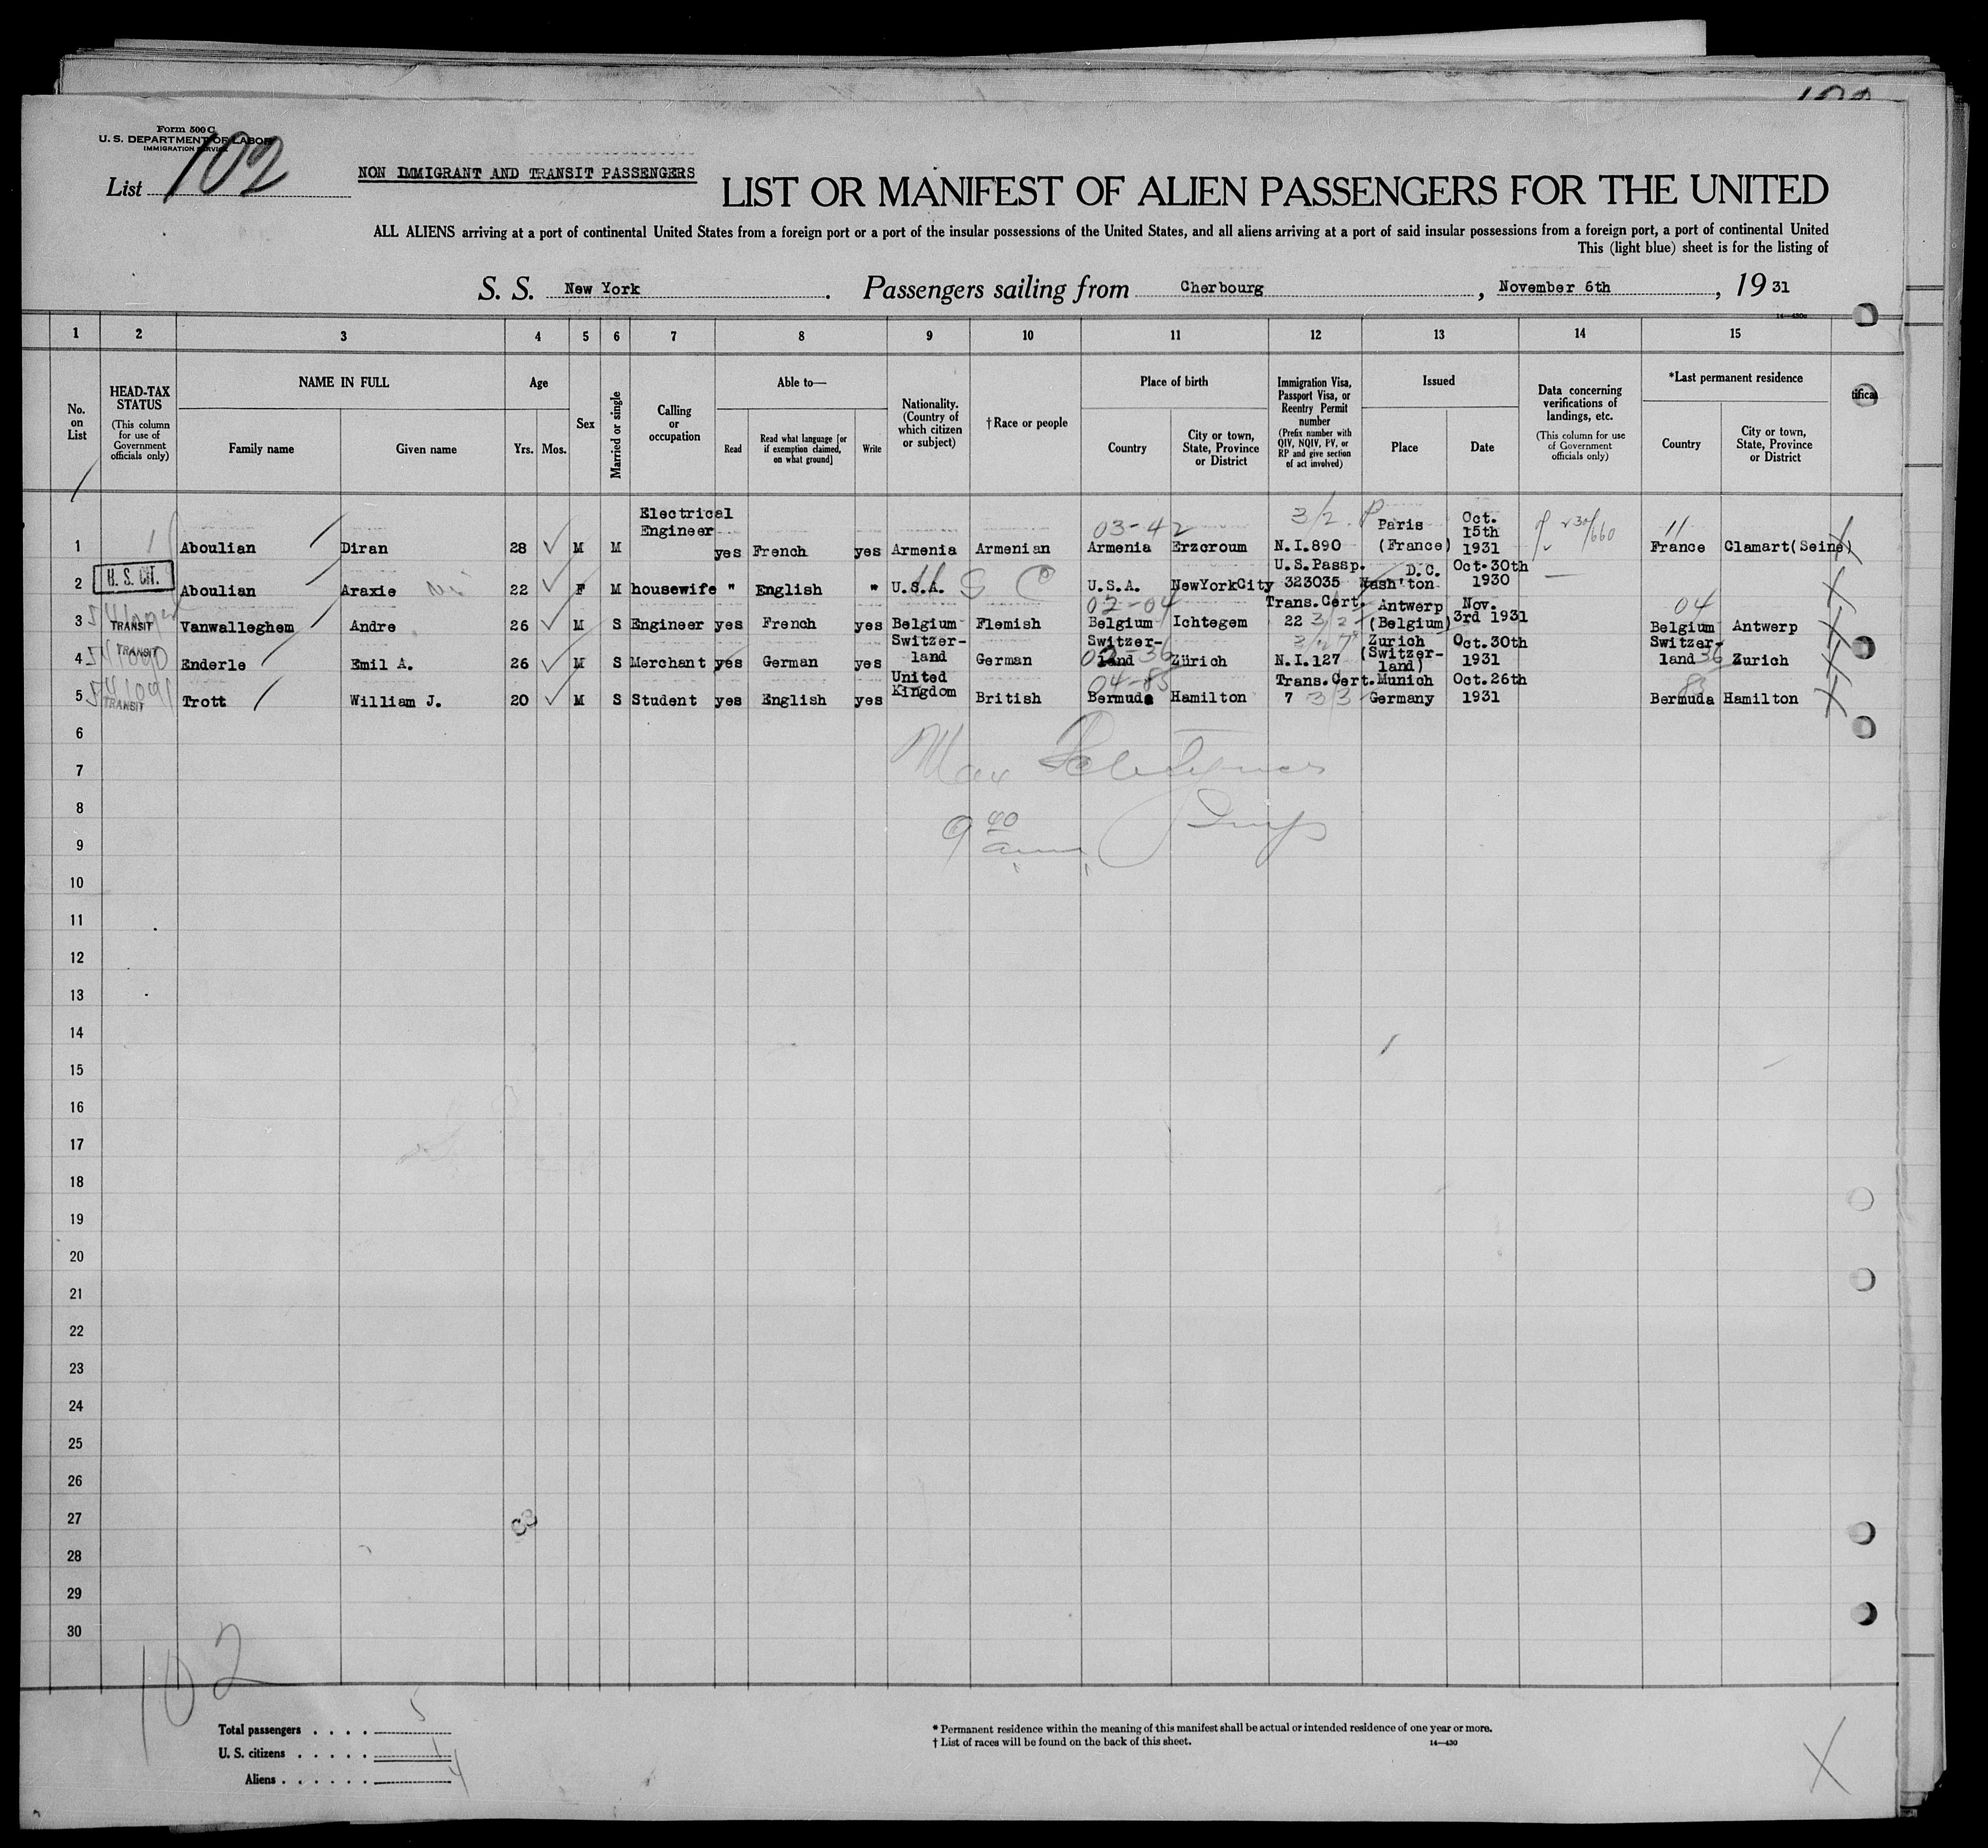 Form 500 C
U. S. DEPARTMENT OF LABOR
IMMIGRATION SERVICE
List 102
NON IMMIGRANT AND TRANSIT PASSENGERS
LIST OR MANIFEST OF ALIEN PASSENGERS FOR THE UNITED
ALL ALIENS arriving at a port of continental United States from a foreign port or a port of the insular possessions of the United States, and all aliens arriving at a port of said insular possessions from a foreign port, a port of continental United
This (light blue) sheet is for the listing of
S. S. New York. Passengers sailing from Cherbourg, November 6th, 1931
14—430c
1 2 3 4 5 6 7 8 9 10 11 12 13 14 15
No. on List
HEAD-TAX STATUS (This column for use of Government officials only)
NAME IN FULL Family name Given name
Age Yrs. Mos.
Sex
Married or single
Calling or occupation
Able to— Read Read what language [or if exemption claimed, on what ground] Write
Nationality. (Country of which citizen or subject)
†Race or people
Place of birth Country City or town, State, Province or District
Immigration Visa, Passport Visa, or Reentry Permit number (Prefix number with QIV, NQIV, PV, or RP and give section of act involved)
Issued Place Date
Data concerning verifications of landings, etc. (This column for use of Government officials only)
*Last permanent residence Country City or town, State, Province or District
tifica
1 Aboulian Diran 28 M M Electrical Engineer yes French yes Armenia Armenian 03-42 Armenia Erzcroum 3/2 N.I.890 P Paris (France) Oct. 15th 1931 11 France Clamart(Seine)
2 U. S. CIT. Aboulian Araxie 22 F M housewife " English " U.S.A. U S C U.S.A. NewYorkCity U.S.Passp. 323035 D.C. Wash'ton Oct.30th 1930 —
3 TRANSIT Vanwalleghem Andre 26 M S Engineer yes French yes Belgium Flemish 02-04 Belgium Ichtegem Trans.Cert. 22 3/2 Antwerp (Belgium) Nov. 3rd 1931 04 Belgium Antwerp
4 541090 TRANSIT Enderle Emil A. 26 M S Merchant yes German yes Switzer-land German 02-36 Switzer-land Zürich N.I.127 Zurich (Switzer-land) Oct.30th 1931 Switzer-land 36 Zurich
5 541091 TRANSIT Trott William J. 20 M S Student yes English yes United Kingdom British 04-83 Bermuda Hamilton Trans.Cert. 7 3/3 Munich Germany Oct.26th 1931 83 Bermuda Hamilton
6
7 Max
8
9 9 40 am
10
11
12
13
14
15
16
17
18
19
20
21
22
23
24
25
26
27
28
29
30
102
Total passengers . . . . 5
U. S. citizens . . . . . 1
Aliens . . . . . . 4
* Permanent residence within the meaning of this manifest shall be actual or intended residence of one year or more.
† List of races will be found on the back of this sheet.
14—430